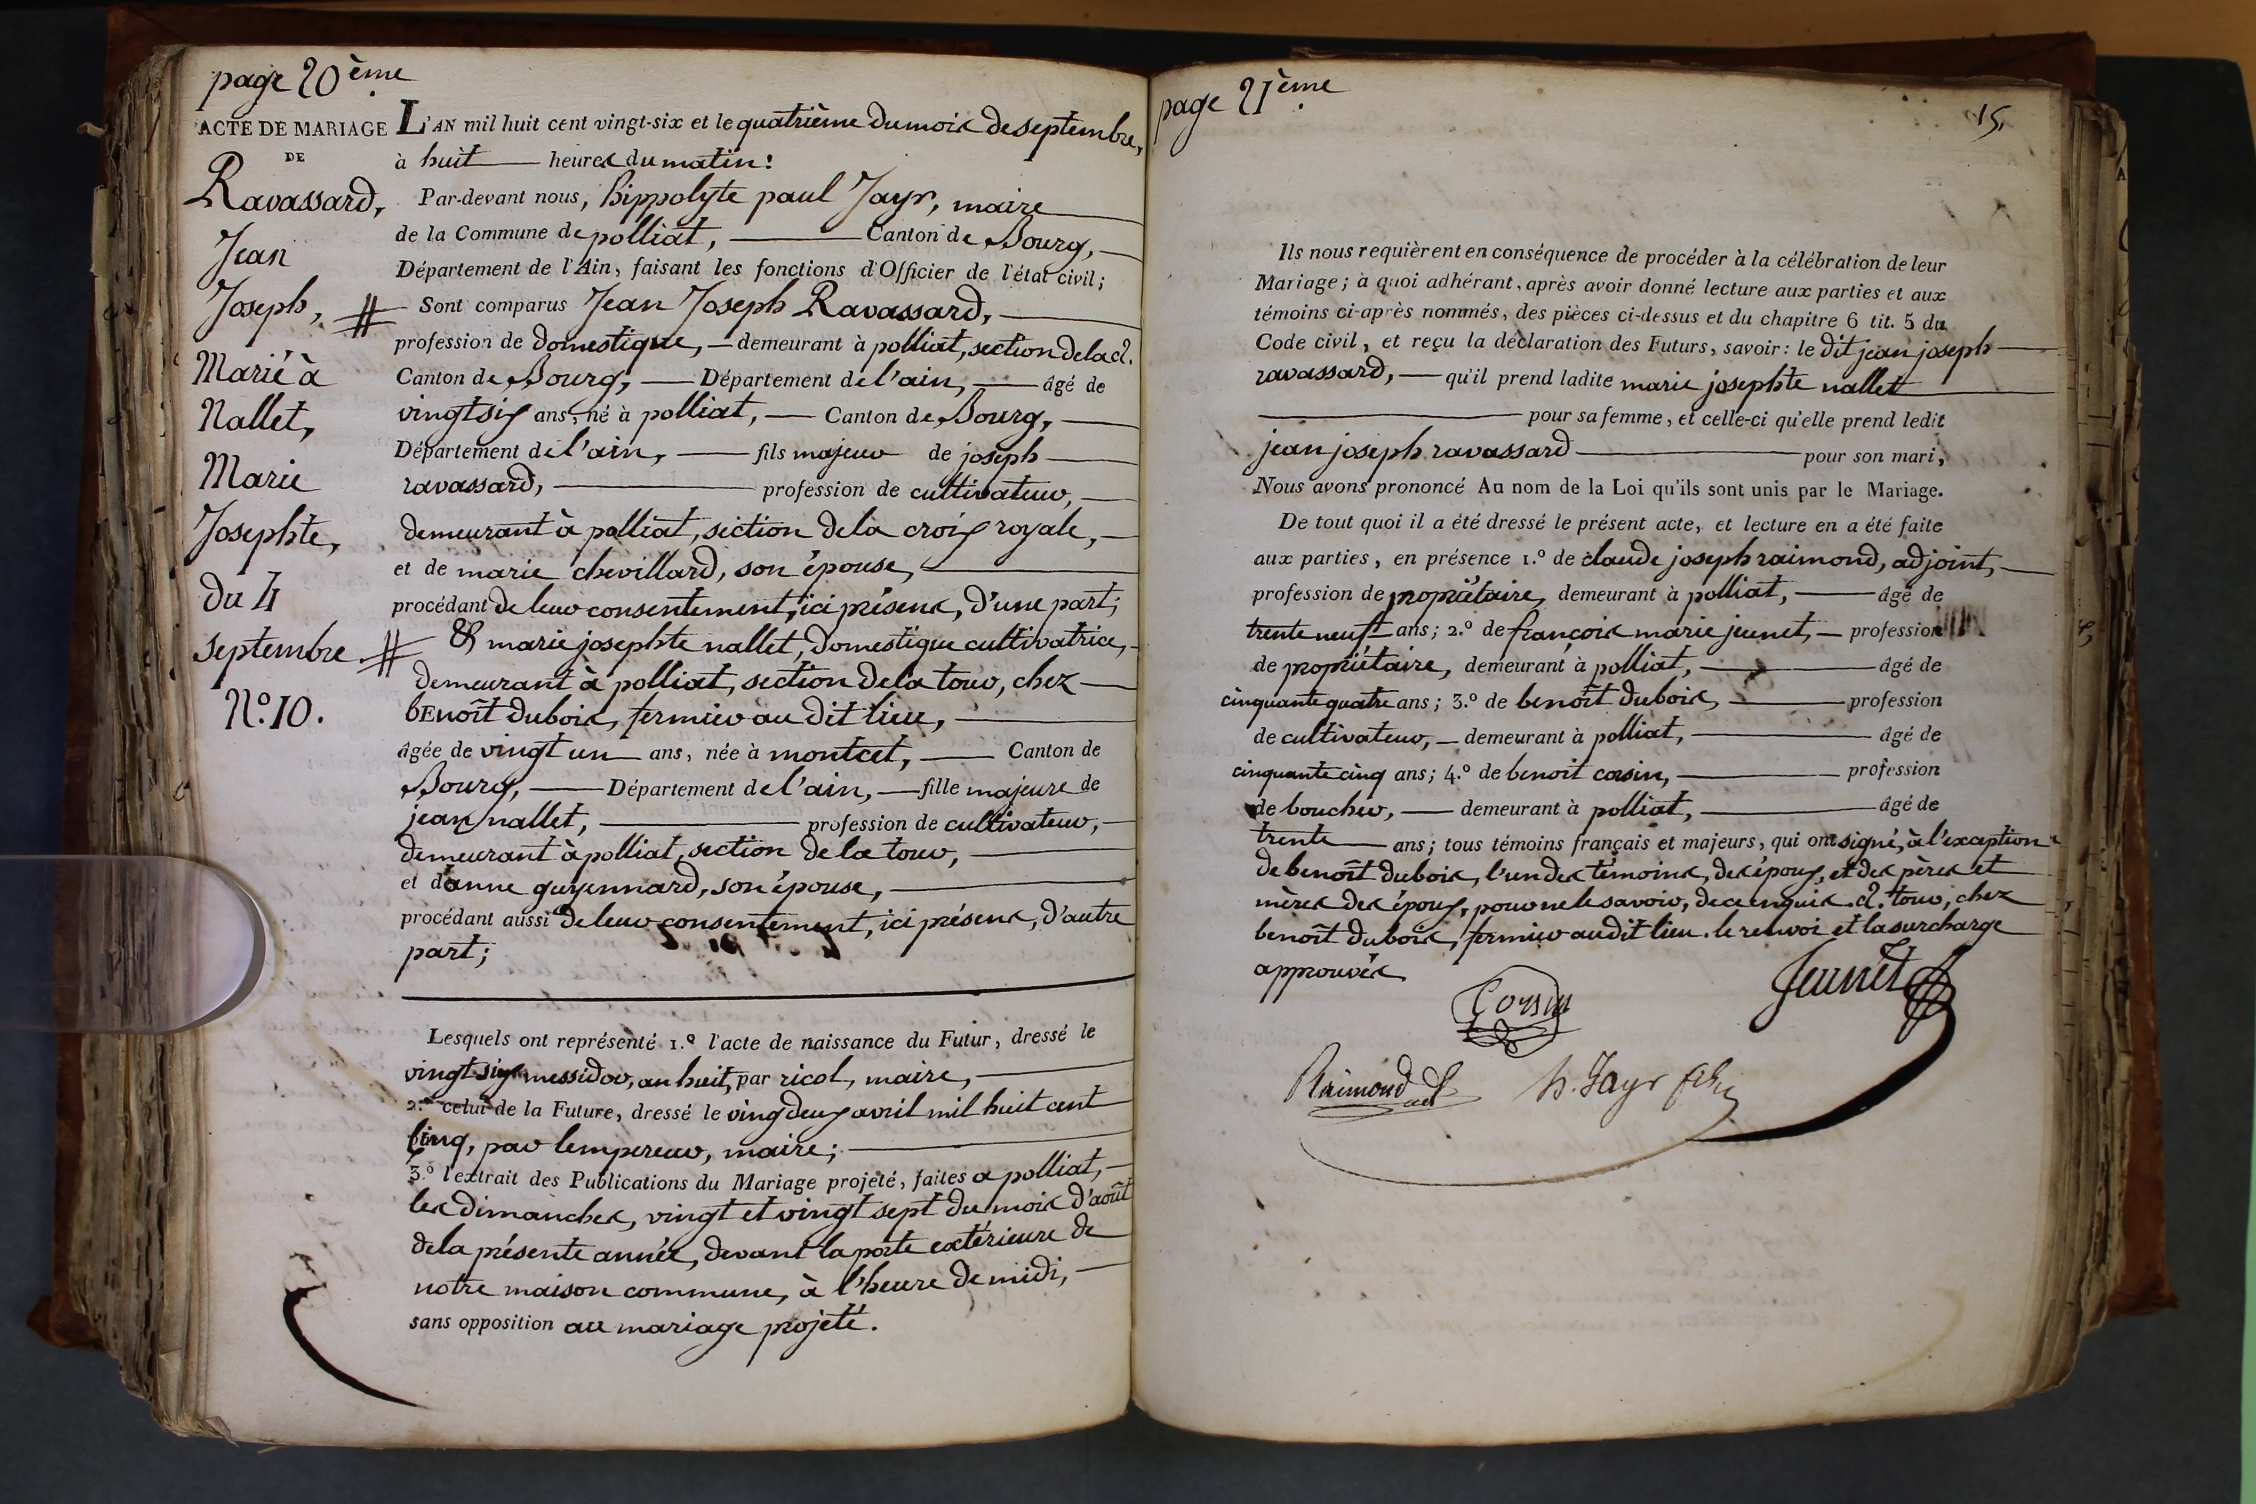 page 20ème
ACTE DE MARIAGE
DE
Ravassard,
Jean
Joseph,
Marié à
Nallet,
Marie
Josephte,
du 4
septembre
N.º 10.
L'AN mil huit cent vingt-six et le quatrième du mois de septembre,
à huit heures du matin:
Par-devant nous, hippolyte paul Jayr, maire
de la Commune de polliat, Canton de Bourg,
Département de l'Ain, faisant les fonctions d'Officier de l'état civil;
Sont comparus Jean Joseph Ravassard,
profession de domestique, demeurant à polliat, section de la
Canton de Bourg, Département de l'ain, âgé de
vingt six ans, né à polliat, Canton de Bourg,
Département de l'ain, fils majeur de joseph
ravassard, profession de cultivateur,
demeurant à polliat, section de la croix royale,
et de marie chevillard, son épouse,
procédant de leur consentement, ici présens, d'une part;
& marie josephte nallet, domestique cultivatrice,
demeurant à polliat, section de la tour, chez
bEnoît dubois, fermier au dit lieu,
âgée de vingt un ans, née à montcet, Canton de
Bourg, Département de l'ain, fille majeure de
jean nallet, profession de cultivateur,
demeurant à polliat, section de la tour,
et d'anne guyennard, son épouse,
procédant aussi de leur consentement, ici présens, d'autre
part;
Lesquels ont représenté 1.º l'acte de naissance du Futur, dressé le
vingt six messidor, an huit, par ricol, maire,
2.º celui de la Future, dressé le ving deux avril mil huit cent
Cinq, par lempereur, maire;
3.º l'extrait des Publications du Mariage projeté, faites a polliat,
les dimanches, vingt et vingt sept du mois d'août
de la présente année, devant la porte extérieure de
notre maison commune, à l'heure de midi,
sans opposition au mariage projeté.
page 21ème
15,
Ils nous requièrent en conséquence de procéder à la célébration de leur
Mariage; à quoi adhérant, après avoir donné lecture aux parties et aux
témoins ci-après nommés, des pièces ci-dessus et du chapitre 6 tit. 5 du
Code civil, et reçu la déclaration des Futurs, savoir: le dit jean joseph
ravassard, qu'il prend ladite marie josephte nallet
pour sa femme, et celle-ci qu'elle prend ledit
jean joseph ravassard pour son mari,
Nous avons prononcé Au nom de la Loi qu'ils sont unis par le Mariage.
De tout quoi il a été dressé le présent acte, et lecture en a été faite
aux parties, en présence 1.º de claude joseph raimond, adjoint,
profession de propriétaire, demeurant à polliat, âgé de
trente neuf ans; 2.º de françois marie jeunet, profession
de propriétaire, demeurant à polliat, âgé de
cinquante quatre ans; 3.º de benoît dubois, profession
de cultivateur, demeurant à polliat, âgé de
cinquante cinq ans; 4.º de benoit corsin, profession
de boucher, demeurant à polliat, âgé de
trente ans; tous témoins français et majeurs, qui ont signé, à l'exception
de benoît dubois, l'un des témoins, des époux, et des pères et
mères des époux, pour ne le savoir, de ce enquis. tour, chez
benoît dubois, fermier au dit lieu. le renvoi et la surcharge
approuvés
Corsin
Jeunet
Raimond adj
h. Jayr